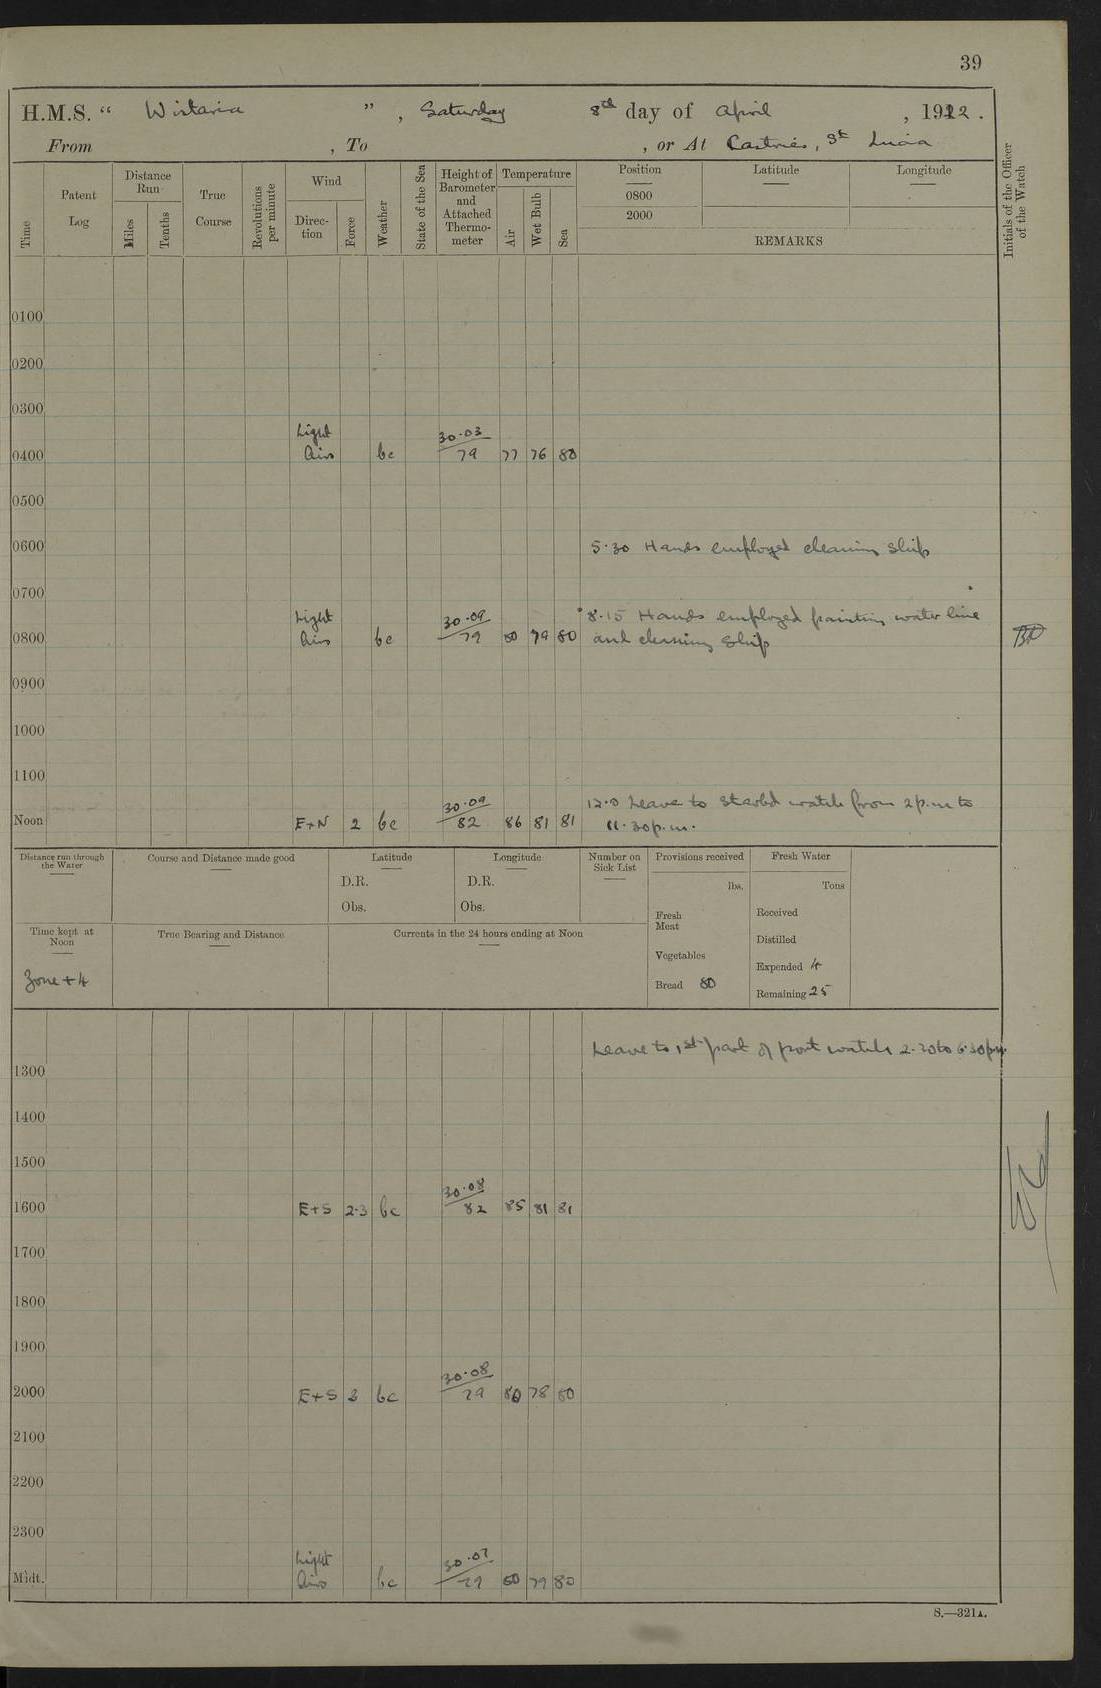 39
H.M.S. “ Wistaria ” , Saturday 8th day of April , 1922 .
From , To , or At Castries, St Lucia
Time
Patent Log
Distance Run
Miles
Tenths
True Course
Revolutions per minute
Wind
Direc-tion
Force
Weather
State of the Sea
Height of Barometer and Attached Thermo-meter
Temperature
Air
Wet Bulb
Sea
Position
0800
2000
Latitude
Longitude
REMARKS
Initials of the Officer of the Watch
0100
0200
0300
Light 30.03
0400 Airs bc 79 77 76 80
0500
0600 5.30 Hands employed cleaning ship
0700
Light 30.09 8.15 Hands employed painting water line
0800 Airs bc 79 80 79 80 and cleaning ship
0900
1000
1100
30.09 12.0 Leave to Starbd watch from 2 p.m to
Noon E+N 2 bc 82 86 81 81 11.30 p.m.
Distance run through the Water
Course and Distance made good
Latitude
D.R.
Obs.
Longitude
D.R.
Obs.
Number on Sick List
Provisions received
lbs.
Fresh Meat
Vegetables
Bread 80
Fresh Water
Tons
Received
Distilled
Expended 4
Remaining 25
Time kept at Noon
Zone + 4
True Bearing and Distance
Currents in the 24 hours ending at Noon
Leave to 1st part of port watch 2.30 to 6.30 p.m.
1300
1400
1500
30.08
1600 E+S 2.3 bc 82 85 81 81
1700
1800
1900
30.08
2000 E+S 2 bc 79 80 78 80
2100
2200
2300
Light 30.07
Midt. Airs bc 79 80 79 80
S.—321A.